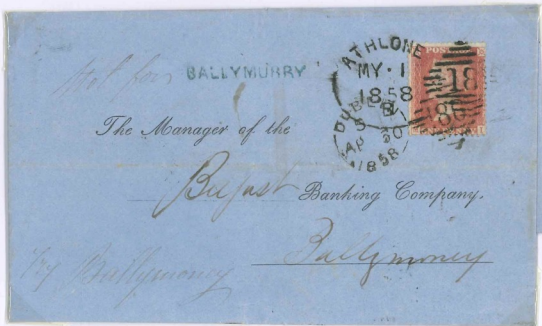 Not for BALLYMURRY
ATHLONE
MY 1
1858
DUBLIN
AP 30
1858
18
The Manager of the
Belfast Banking Company.
Ballymoney
Try Ballymoney